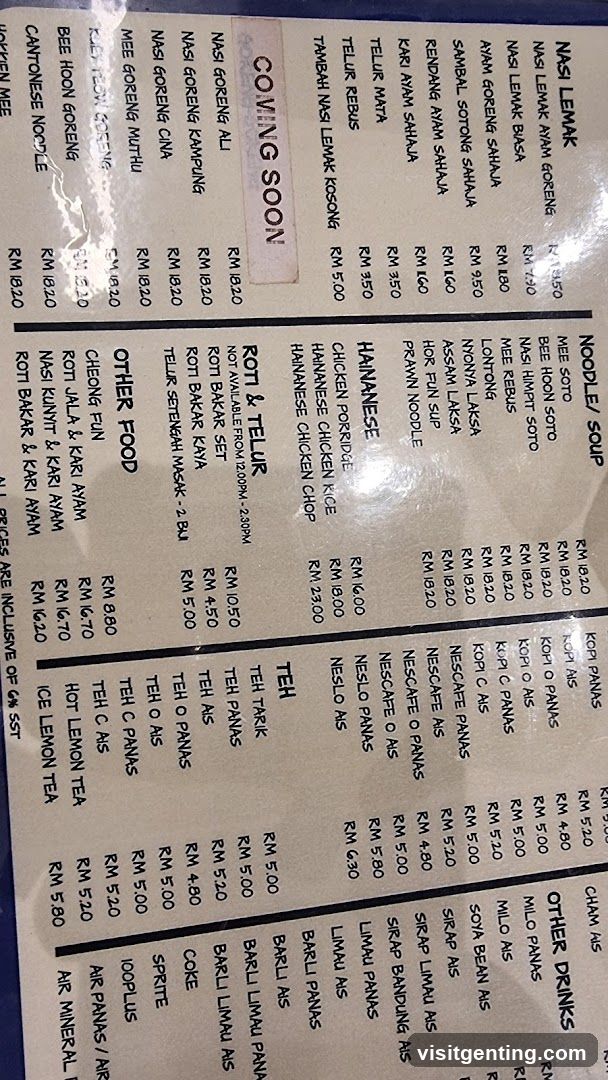 NASI LEMAK
NASI LEMAK AYAM GORENG RM 18.50
NASI LEMAK BIASA RM 7.90
AYAM GORENG SAHAJA RM 11.80
SAMBAL SOTONG SAHAJA RM 9.50
RENDANG AYAM SAHAJA RM 11.60
KARI AYAM SAHAJA RM 11.60
TELUR MATA RM 3.50
TELUR REBUS RM 3.50
TAMBAH NASI LEMAK KOSONG RM 5.00
COMING SOON
NASI GORENG ALI RM 18.20
NASI GORENG KAMPUNG RM 18.20
NASI GORENG CINA RM 18.20
MEE GORENG MUTHU RM 18.20
KUEY TEOW GORENG RM 18.20
BEE HOON GORENG RM 18.20
CANTONESE NOODLE RM 18.20
HOKKIEN MEE RM 18.20
NOODLE/ SOUP
MEE SOTO RM 18.20
BEE HOON SOTO RM 18.20
NASI HIMPIT SOTO RM 18.20
MEE REBUS RM 18.20
LONTONG RM 18.20
NYONYA LAKSA RM 18.20
ASSAM LAKSA RM 18.20
HOR FUN SUP RM 18.20
PRAWN NOODLE RM 18.20
HAINANESE
CHICKEN PORRIDGE RM 16.00
HAINANESE CHICKEN RICE RM 18.00
HAINANESE CHICKEN CHOP RM 23.00
ROTI & TELUR
NOT AVAILABLE FROM 12.00PM - 2.30PM
ROTI BAKAR SET RM 10.50
ROTI BAKAR KAYA RM 4.50
TELUR SETENGAH MASAK - 2 BIJI RM 5.00
OTHER FOOD
CHEONG FUN RM 8.80
ROTI JALA & KARI AYAM RM 16.70
NASI KUNYIT & KARI AYAM RM 16.70
ROTI BAKAR & KARI AYAM RM 16.20
KOPI PANAS RM
KOPI AIS RM 5.20
KOPI O PANAS RM 4.80
KOPI O AIS RM 5.00
KOPI C PANAS RM 5.00
KOPI C AIS RM 5.20
NESCAFE PANAS RM 5.00
NESCAFE AIS RM 5.20
NESCAFE O PANAS RM 4.80
NESCAFE O AIS RM 5.00
NESLO PANAS RM 5.80
NESLO AIS RM 6.30
TEH
TEH TARIK RM 5.00
TEH PANAS RM 5.00
TEH AIS RM 5.20
TEH O PANAS RM 4.80
TEH O AIS RM 5.00
TEH C PANAS RM 5.00
TEH C AIS RM 5.20
HOT LEMON TEA RM 5.20
ICE LEMON TEA RM 5.80
CHAM AIS
OTHER DRINKS
MILO PANAS RM
MILO AIS RM
SOYA BEAN AIS
SIRAP AIS
SIRAP LIMAU AIS
SIRAP BANDUNG AIS
LIMAU PANAS
LIMAU AIS
BARLI PANAS
BARLI AIS
BARLI LIMAU PANA
BARLI LIMAU AIS
COKE
SPRITE
100PLUS
AIR PANAS / AIR
AIR MINERAL
ALL PRICES ARE INCLUSIVE OF 6% SST
visitgenting.com